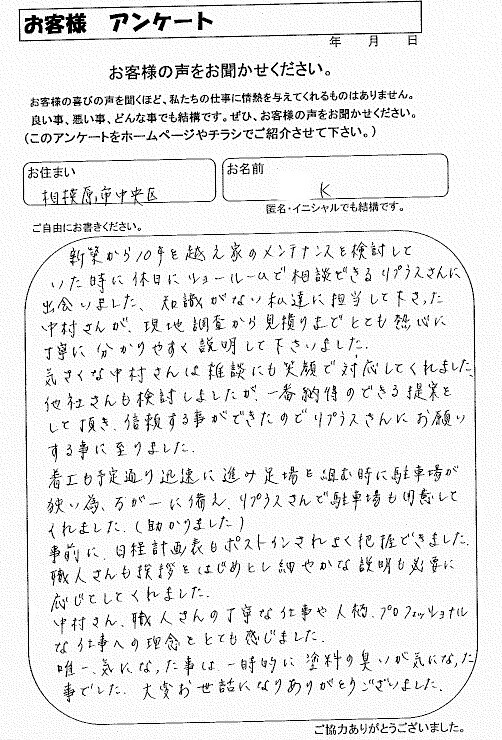 お客様 アンケート
年 月 日
お客様の声をお聞かせください。
お客様の喜びの声を聞くほど、私たちの仕事に情熱を与えてくれるものはありません。
良い事、悪い事、どんな事でも結構です。ぜひ、お客様の声をお聞かせください。
(このアンケートをホームページやチラシでご紹介させて下さい。)
お住まい
相模原市中央区
お名前
K
匿名・イニシャルでも結構です。
ご自由にお書きください。
新築から10年を越え家のメンテナンスを検討して
いた時に休日にショールームで相談できるリプラスさんに
出会いました。知識がない私達に担当して下さった
中村さんが、現地調査から見積りまでとても熱心に
丁寧に分かりやすく説明して下さいました。
気さくな中村さんは雑談にも笑顔で対応してくれました。
他社さんも検討しましたが、一番納得のできる提案を
して頂き、信頼する事ができたのでリプラスさんにお願い
する事に至りました。
着工も予定通り迅速に進み足場を組む時に駐車場が
狭い為、万が一に備え、リプラスさんで駐車場も用意して
くれました。(助かりました)
事前に、日程計画表もポストインされよく把握できました。
職人さんも挨拶をはじめとし細やかな説明も必要に
応じてしてくれました。
中村さん、職人さんの丁寧な仕事や人柄、プロフェッショナル
な仕事への理念をとても感じました。
唯一、気になった事は一時的に塗料の臭いが気になった
事でした。大変お世話になりありがとうございました。
ご協力ありがとうございました。